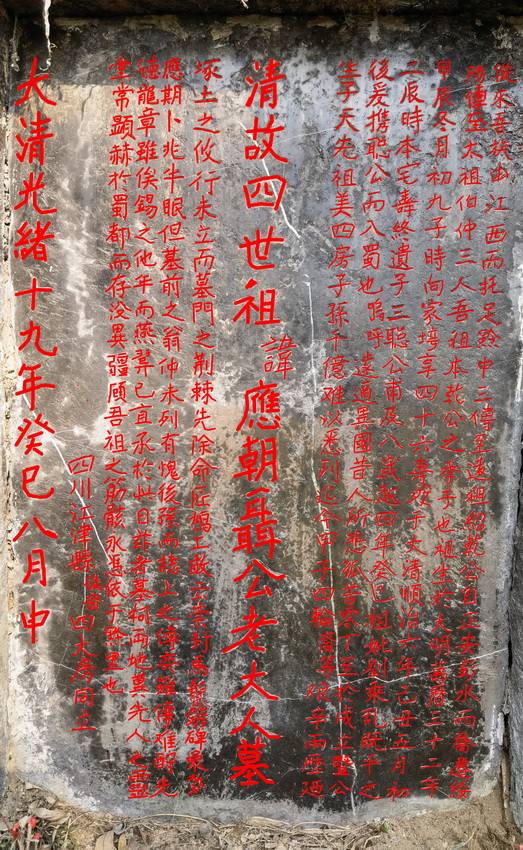 從來吾族由江西而托足黔中二傳至遠祖紹乾公自正安彭水而
傳至太祖伯仲三人吾祖本乾公之季子也 生於大明萬曆三十二年
甲辰冬月初九子時向家壩享四十六壽歿于大清順治六年己丑五月初
二辰時本宅壽終遺子三聰公甫及八歲越四年癸巳祖妣劉 乳既平之
後爰攜聰公而入蜀也嗚呼遠適異國昔人所悲孤苦零丁至於成立 公
生子天先祖美四房子孫千億难以悉列 今甲子四輪裔等 歷
清故四世祖諱應朝聶公老大人墓
塚土之攸行未立而墓門之荆棘先除命匠 工 封 碑
應期卜兆牛眠但基前之翁仲未列有愧後孫而 上之 难酹先
德龍章雖俟錫之他年而燕翼已宜承於此日 墓祠両地 先人之靈
堂常顯赫於蜀都而存沒異疆顧吾祖之筋骸永憑依于黔里也
四川江津縣 四大房同立
大清光緒十九年癸巳八月中